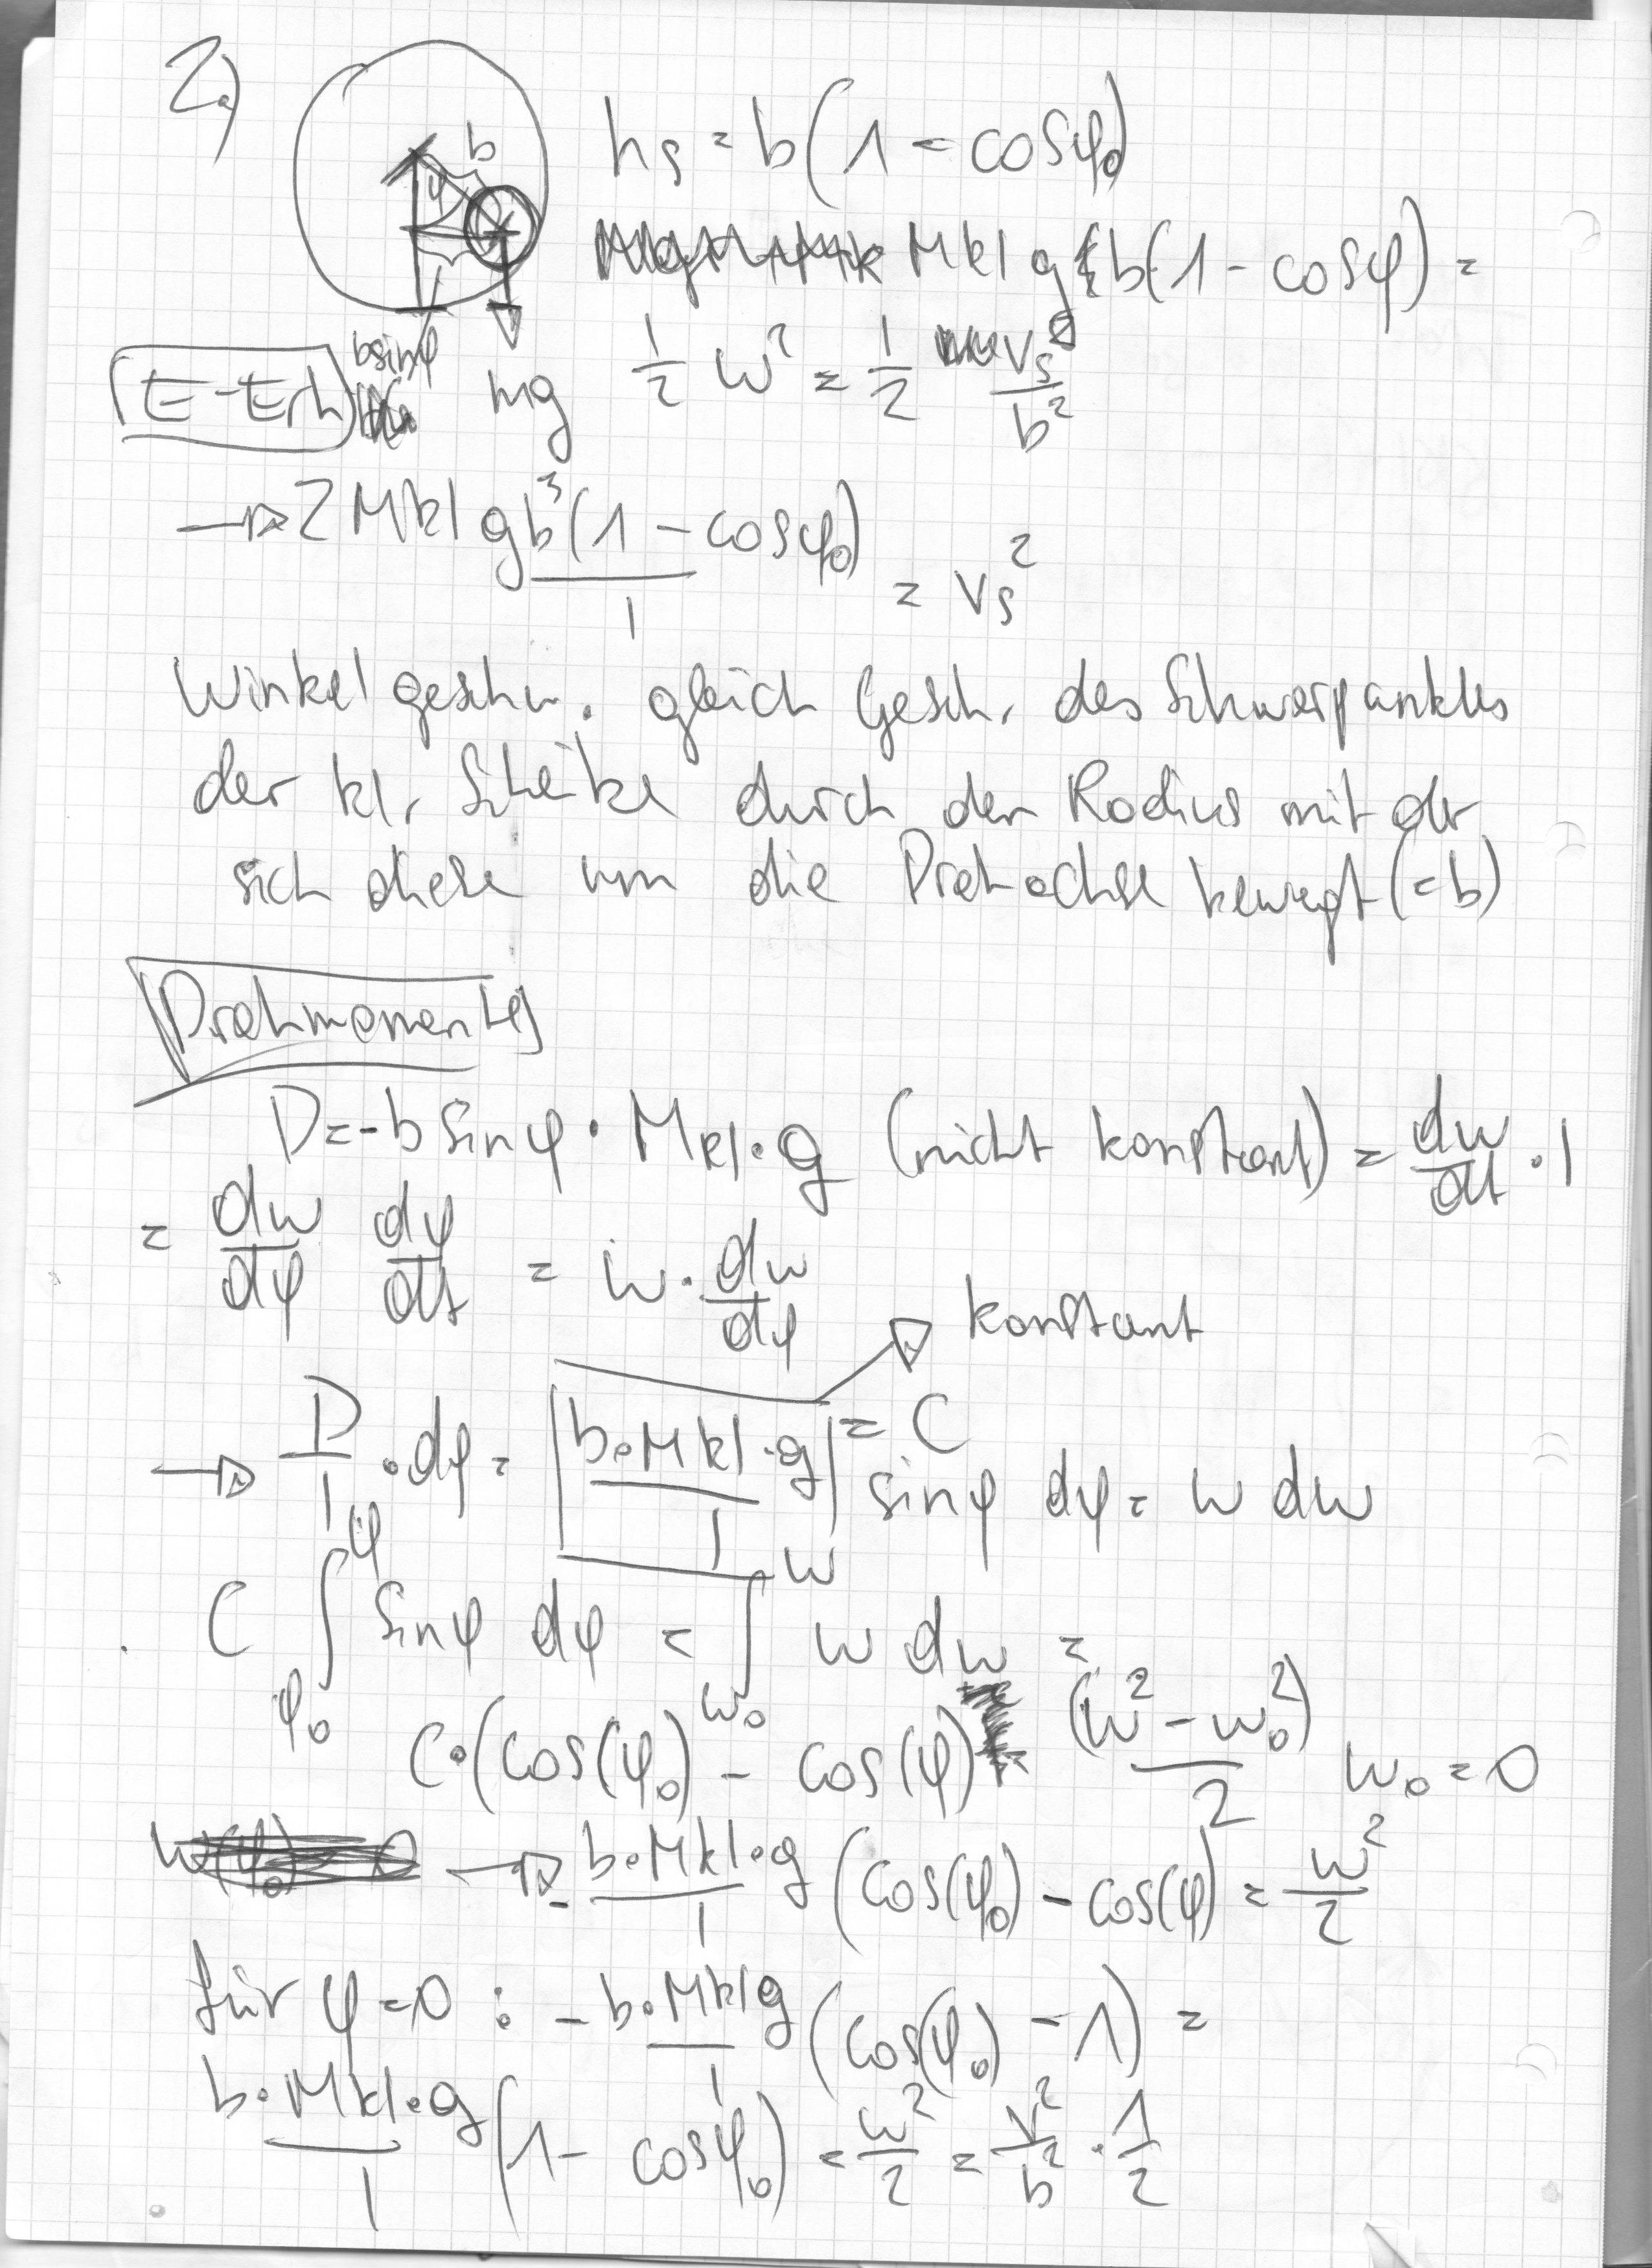 2.)
b
φ
h_s = b(1 - cosφ_0)
Mkl g b(1 - cosφ) =
E-Erh
b sinφ
mg
1/2 w² = 1/2 v_s²/b²
→ 2 Mkl g b³(1 - cosφ_0)/I = v_s²
Winkelgeschw. gleich Gesch. des Schwerpunktes
der kl. Scheibe durch den Radius mit der
sich diese um die Drehachse bewegt (=b)
Drehmomente
D = -b sinφ · Mkl · g (nicht konstant) = dw/dt · I
= dw/dφ dφ/dt = w · dw/dφ
konstant
→ D/I · dφ = b·Mkl·g/I = C sinφ dφ = w dw
C ∫_φ_0^φ sinφ dφ = ∫_w_0^w w dw =
C·(cos(φ_0) - cos(φ)) (w² - w_0²)/2 w_0 = 0
→ - b·Mkl·g/I (cos(φ_0) - cos(φ)) = w²/2
für φ=0 : - b·Mkl g/I (cos(φ_0) - 1) =
b·Mkl·g/I (1 - cosφ_0) = w²/2 = v²/b² · 1/2